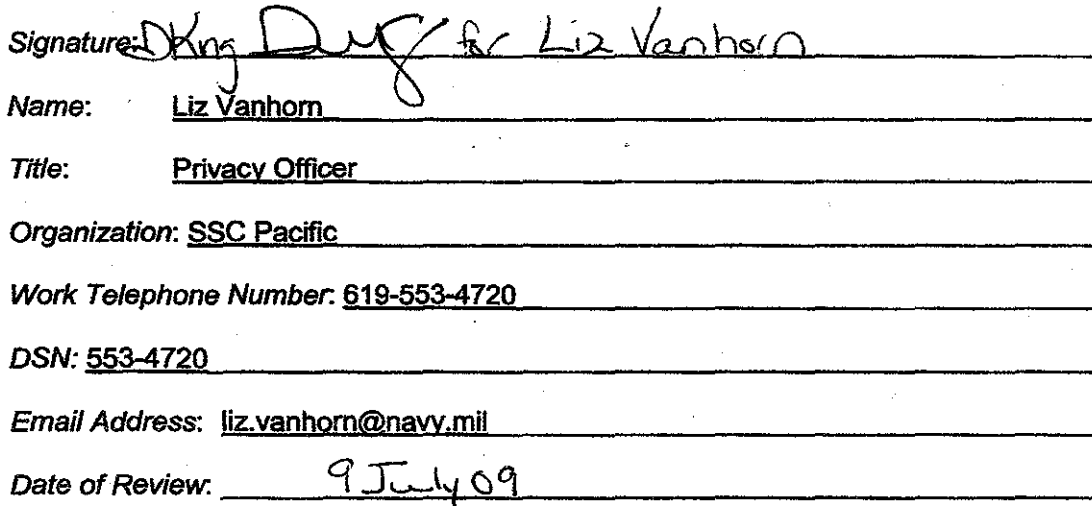 Signature: DKng for Liz Vanhorn
Name: Liz Vanhorn
Title: Privacy Officer
Organization: SSC Pacific
Work Telephone Number: 619-553-4720
DSN: 553-4720
Email Address: liz.vanhorn@navy.mil
Date of Review: 9 July 09